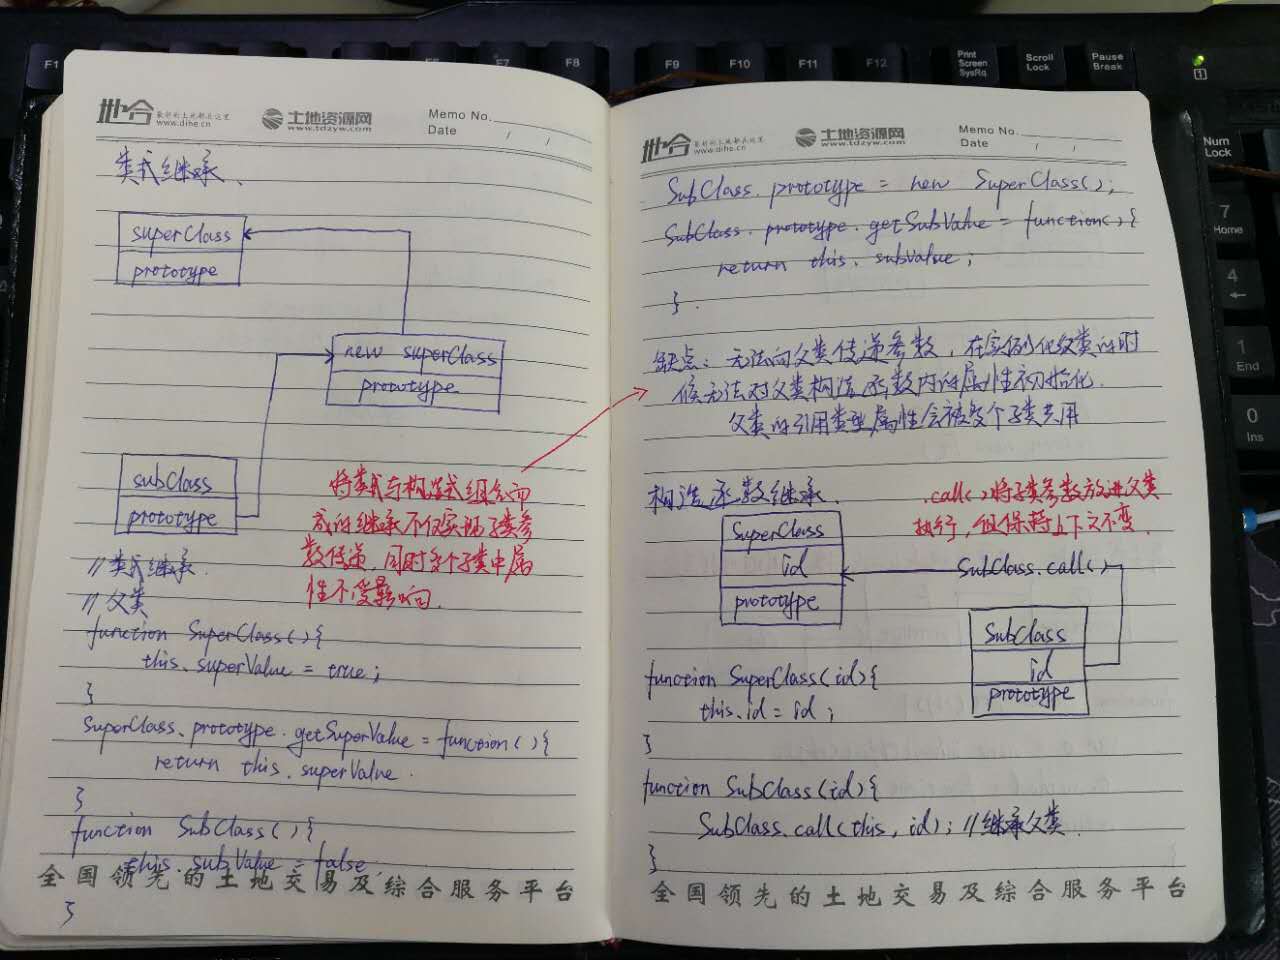 世合 最好的土地都在这里
www.dihe.cn
土地资源网
www.tdzyw.com
Memo No.
Date / /
类式继承、
superClass
prototype
new superClass
prototype
subClass
prototype
将类式与构造式组合而
成的继承不仅实现子类参
数传递,同时每个子类中属
性不受影响.
// 类式继承.
// 父类
function SuperClass(){
this.superValue = true;
}
SuperClass.prototype.getSuperValue = function(){
return this.superValue.
}
function SubClass(){
this.subValue = false.
}
全国领先的土地交易及综合服务平台
www.dihe.cn
土地资源网
www.tdzyw.com
Memo No.
Date / /
SubClass.prototype = new SuperClass();
SubClass.prototype.getSubValue = function(){
return this.subValue;
}.
缺点:无法向父类传递参数,在实例化父类的时
候无法对父类构造函数内的属性初始化.
父类的引用类型属性会被每个子类共用
构造函数继承.
.call()将子类参数放进父类
执行,但保持上下文不变.
SuperClass
id
prototype
SubClass.call()
SubClass
id
prototype
function SuperClass(id){
this.id = id;
}
function SubClass(id){
SubClass.call(this, id); //继承父类.
}
全国领先的土地交易及综合服务平台
F1
F7
F8
F9
F10
F11
F12
Print
Screen
SysRq
Scroll
Lock
Pause
Break
1
Num
Lock
7
Home
4
←
1
End
0
Ins